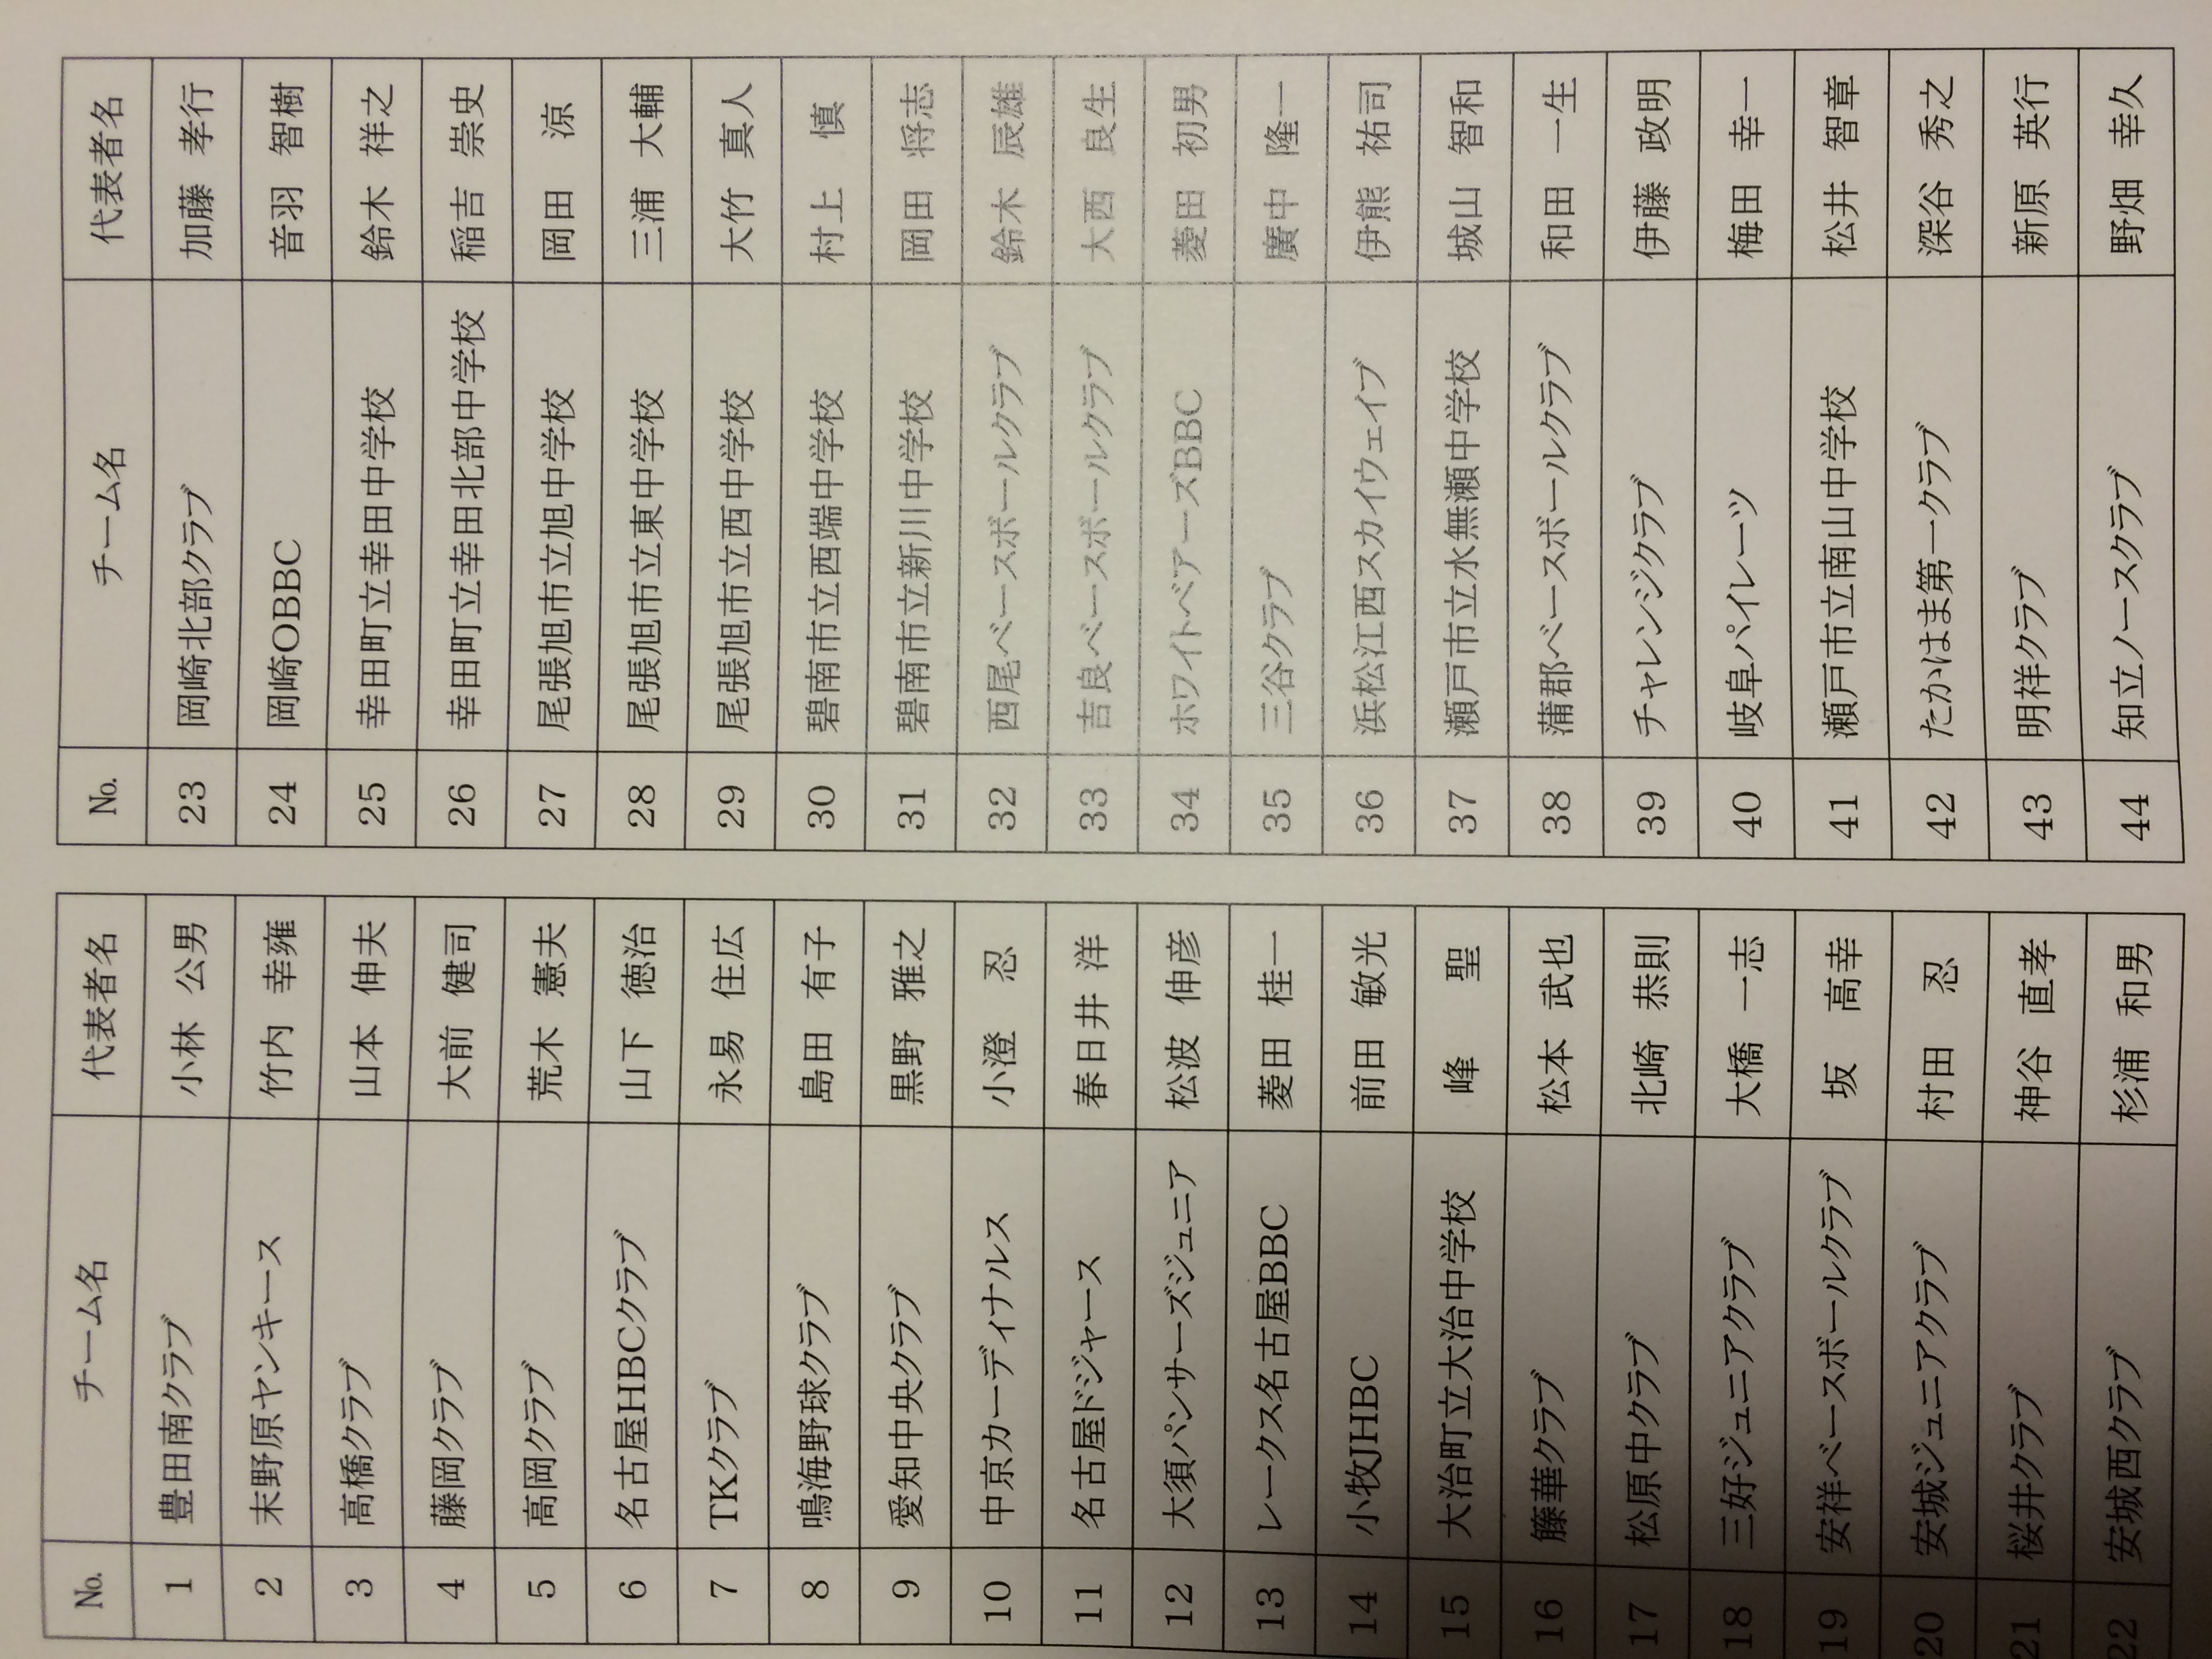 No. チーム名 代表者名
1 豊田南クラブ 小林 公男
2 末野原ヤンキース 竹内 幸雍
3 高橋クラブ 山本 伸夫
4 藤岡クラブ 大前 健司
5 高岡クラブ 荒木 憲夫
6 名古屋HBCクラブ 山下 徳治
7 TKクラブ 永易 住広
8 鳴海野球クラブ 島田 有子
9 愛知中央クラブ 黒野 雅之
10 中京カーディナルス 小澄 忍
11 名古屋ドジャース 春日井 洋
12 大須パンサーズジュニア 松波 伸彦
13 レークス名古屋BBC 菱田 桂一
14 小牧JHBC 前田 敏光
15 大治町立大治中学校 峰 聖
16 籐華クラブ 松本 武也
17 松原中クラブ 北崎 恭則
18 三好ジュニアクラブ 大橋 一志
19 安祥ベースボールクラブ 坂 高幸
20 安城ジュニアクラブ 村田 忍
21 桜井クラブ 神谷 直孝
22 安城西クラブ 杉浦 和男
No. チーム名 代表者名
23 岡崎北部クラブ 加藤 孝行
24 岡崎OBBC 音羽 智樹
25 幸田町立幸田中学校 鈴木 祥之
26 幸田町立幸田北部中学校 稲吉 崇史
27 尾張旭市立旭中学校 岡田 涼
28 尾張旭市立東中学校 三浦 大輔
29 尾張旭市立西中学校 大竹 真人
30 碧南市立西端中学校 村上 慎
31 碧南市立新川中学校 岡田 将志
32 西尾ベースボールクラブ 鈴木 辰雄
33 吉良ベースボールクラブ 大西 良生
34 ホワイトベアーズBBC 菱田 初男
35 三谷クラブ 廣中 隆一
36 浜松江西スカイウェイブ 伊熊 祐司
37 瀬戸市立水無瀬中学校 城山 智和
38 蒲郡ベースボールクラブ 和田 一生
39 チャレンジクラブ 伊藤 政明
40 岐阜パイレーツ 梅田 幸一
41 瀬戸市立南山中学校 松井 智章
42 たかはま第一クラブ 深谷 秀之
43 明祥クラブ 新原 英行
44 知立ノースクラブ 野畑 幸久